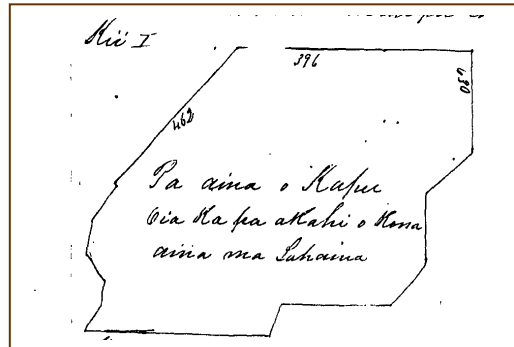 Kii I
396
462
Pa aina o Kapu
Oia Ka pa akahi o Kona
aina ma Lahaina